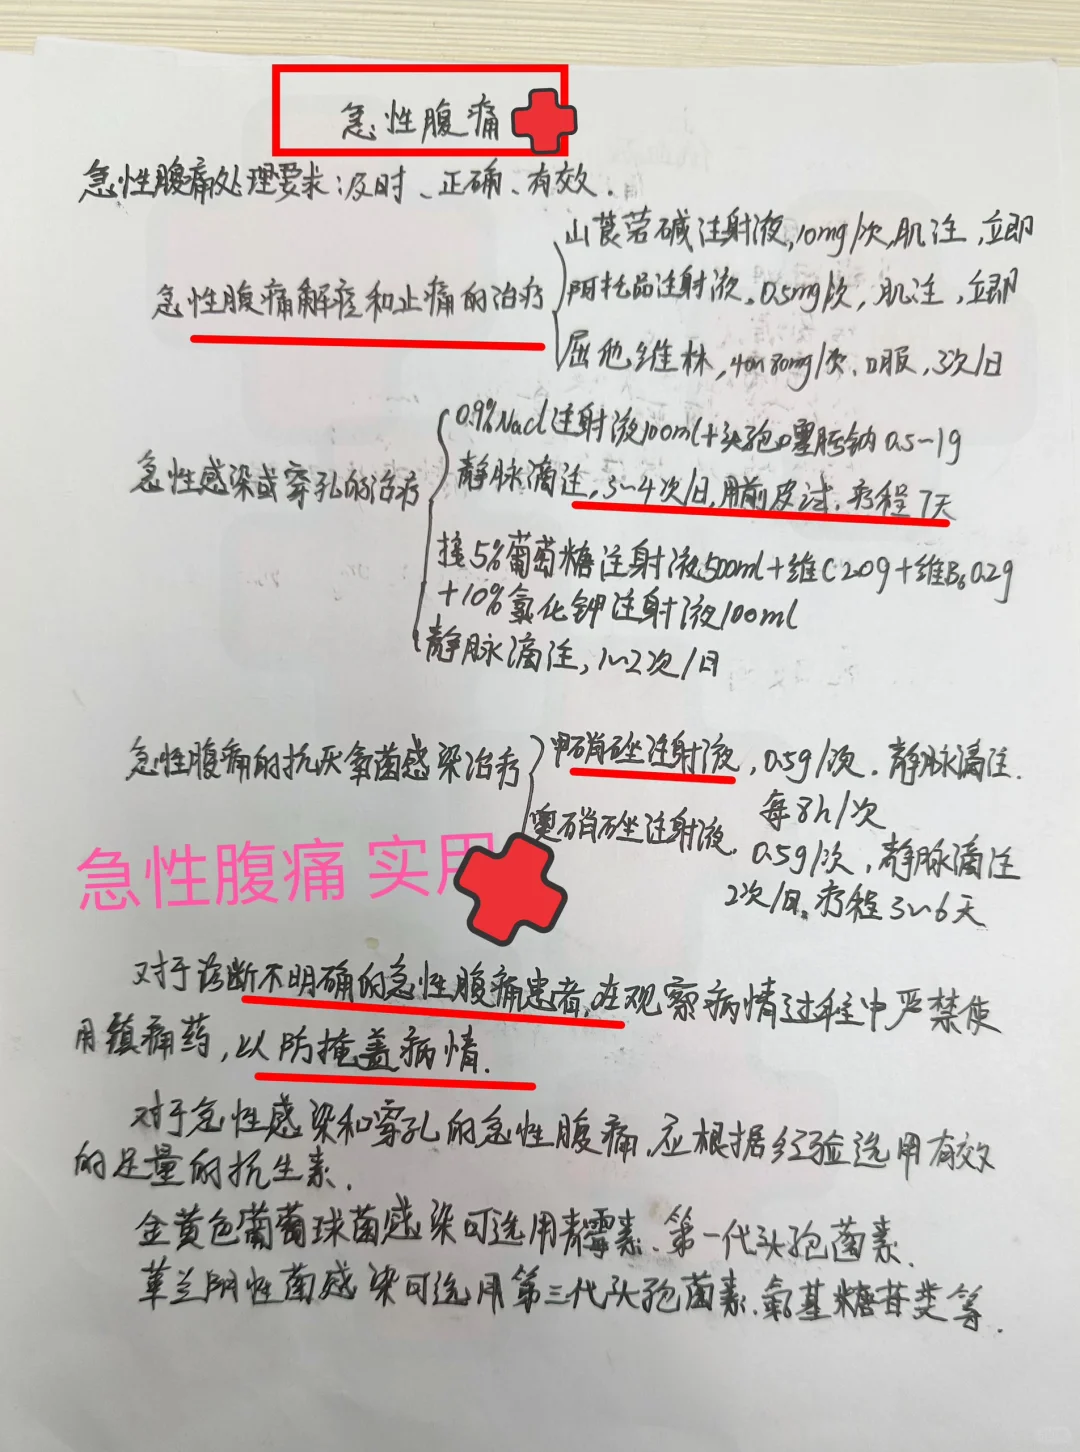 急性腹痛
急性腹痛处理要求:及时、正确、有效.
山莨菪碱注射液,10mg/次,肌注,立即
急性腹痛解痉和止痛的治疗
阿托品注射液,0.5mg/次,肌注,立即
屈他维林,40~80mg/次、口服,3次/日
0.9%Nacl注射液100ml+头孢口塞肟钠0.5~1g
急性感染或穿孔的治疗
静脉滴注,3~4次/日,用前皮试,疗程7天
接5%葡萄糖注射液500ml+维C2.0g+维B6 0.2g
+10%氯化钾注射液100ml
静脉滴注,1~2次/日
急性腹痛的抗厌氧菌感染治疗
甲硝唑注射液,0.5g/次.静脉滴注.
每8h/次
奥硝唑注射液.
0.5g/次,静脉滴注
2次/日。疗程3~6天
急性腹痛 实用
对于诊断不明确的急性腹痛患者,在观察病情过程中严禁使
用镇痛药,以防掩盖病情.
对于急性感染和穿孔的急性腹痛,应根据经验选用有效
的足量的抗生素.
金黄色葡萄球菌感染可选用青霉素、第一代头孢菌素.
革兰阴性菌感染可选用第三代头孢菌素、氨基糖苷类等.